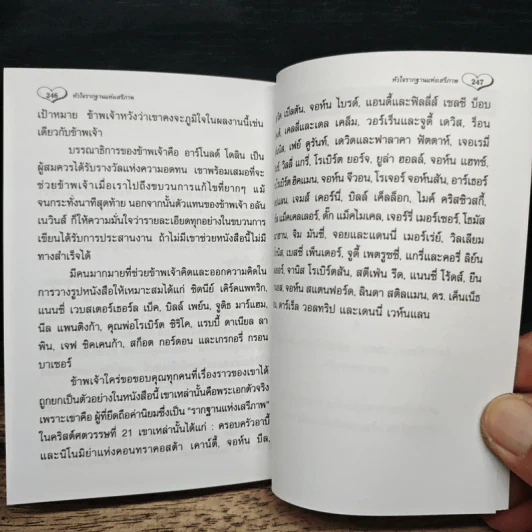 246
หัวใจรากฐานแห่งเสรีภาพ
เป้าหมาย ข้าพเจ้าหวังว่าเขาคงจะภูมิใจในผลงานนี้เช่น
เดียวกับข้าพเจ้า
บรรณาธิการของข้าพเจ้าคือ อาร์โนลด์ โดลิน เป็น
ผู้สมควรได้รับรางวัลแห่งความอดทน เขาพร้อมเสมอที่จะ
ช่วยข้าพเจ้าเมื่อเราไปถึงขบวนการแก้ไขที่ยากๆ แม้
จนกระทั่งนาทีสุดท้าย นอกจากนั้นตัวแทนของข้าพเจ้า อลัน
เนวินส์ ก็ให้ความมั่นใจว่ารายละเอียดทุกอย่างในขบวนการ
เขียนได้รับการประสานงาน ถ้าไม่มีเขาช่วยหนังสือนี้ไม่มี
ทางสำเร็จได้
มีคนมากมายที่ช่วยข้าพเจ้าคิดและออกความคิดใน
การวางรูปหนังสือให้เหมาะสมได้แก่ ซิดนีย์ เคิร์คแพทริก,
แนนซี่ เวบสเตอร์เธอร์ล เบ็ค, บิลล์ เพย์น, จูดิธ มาร์แฮม,
นีล แพนติงก้า, คุณพ่อโรเบิร์ต ซิริโค, แรบบี้ ดาเนียล ลา
พิน, เจฟ ซิคเคนก้า, สก็อต กอร์ดอน และเกรกอรี่ กรอน
บาเซอร์
ข้าพเจ้าใคร่ขอขอบคุณทุกคนที่เรื่องราวของเขาได้
ถูกยกเป็นตัวอย่างในหนังสือนี้ เขาเหล่านั้นคือพระเอกตัวจริง
เพราะเขาคือ ผู้ที่ยึดถือค่านิยมซึ่งเป็น "รากฐานแห่งเสรีภาพ"
ในคริสต์ศตวรรษที่ 21 เขาเหล่านั้นได้แก่ : ครอบครัวอาบี้
และนีโนมิย่าแห่งคอนทราคอสต้า เคาน์ตี้, จอห์น บีล,
หัวใจรากฐานแห่งเสรีภาพ
247
เบ็ลตัน, จอห์น ไบรด์, แอนดี้และฟิลลี่ส์ เชลซี บ๊อบ
เคลลี่และเดล เคล็ม, วอร์เร็นและจูดี้ เดวิส, ร็อน
เฟย์ ดูรันท์, เดวิดและฟาลาคา ฟัตตาห์, เจอเรมี่
วิลลี่ แกรี่, โรเบิร์ต ยอร์จ, ยูล่า ฮอลล์, จอห์น แฮทช์,
ฮิคแมน, จอห์น จีวอน, โรเจอร์ จอห์นสัน, อาร์เธอร์
เจมส์ เคอร์นี่, บิลล์ เค็ลล็อก, ไมค์ คริสซิวสกี้,
แม็คเดลเลอร์, ดั๊ก แม็คไมเคล, เจอร์รี่ เมอร์เซอร์, โธมัส
จิม มันซี่, จอยและแดนนี่ เมอร์เร่ย์, วิลเลียม
เบสซี่ เพ็นเตอร์, จูดี้ เพตรูซซี่, แกรี่และคอรี่ ลิย์น
จานิส โรเบิร์ตสัน, สตีเฟ่น รีด, แนนซี่ โร้ดส์, ยีน
จอห์น สแตนฟอร์ด, ลินดา สติลแมน, ดร. เค็นเน็ธ
ดาร์เร็ล วอลทริป และเดนนี่ เวห์นแลน